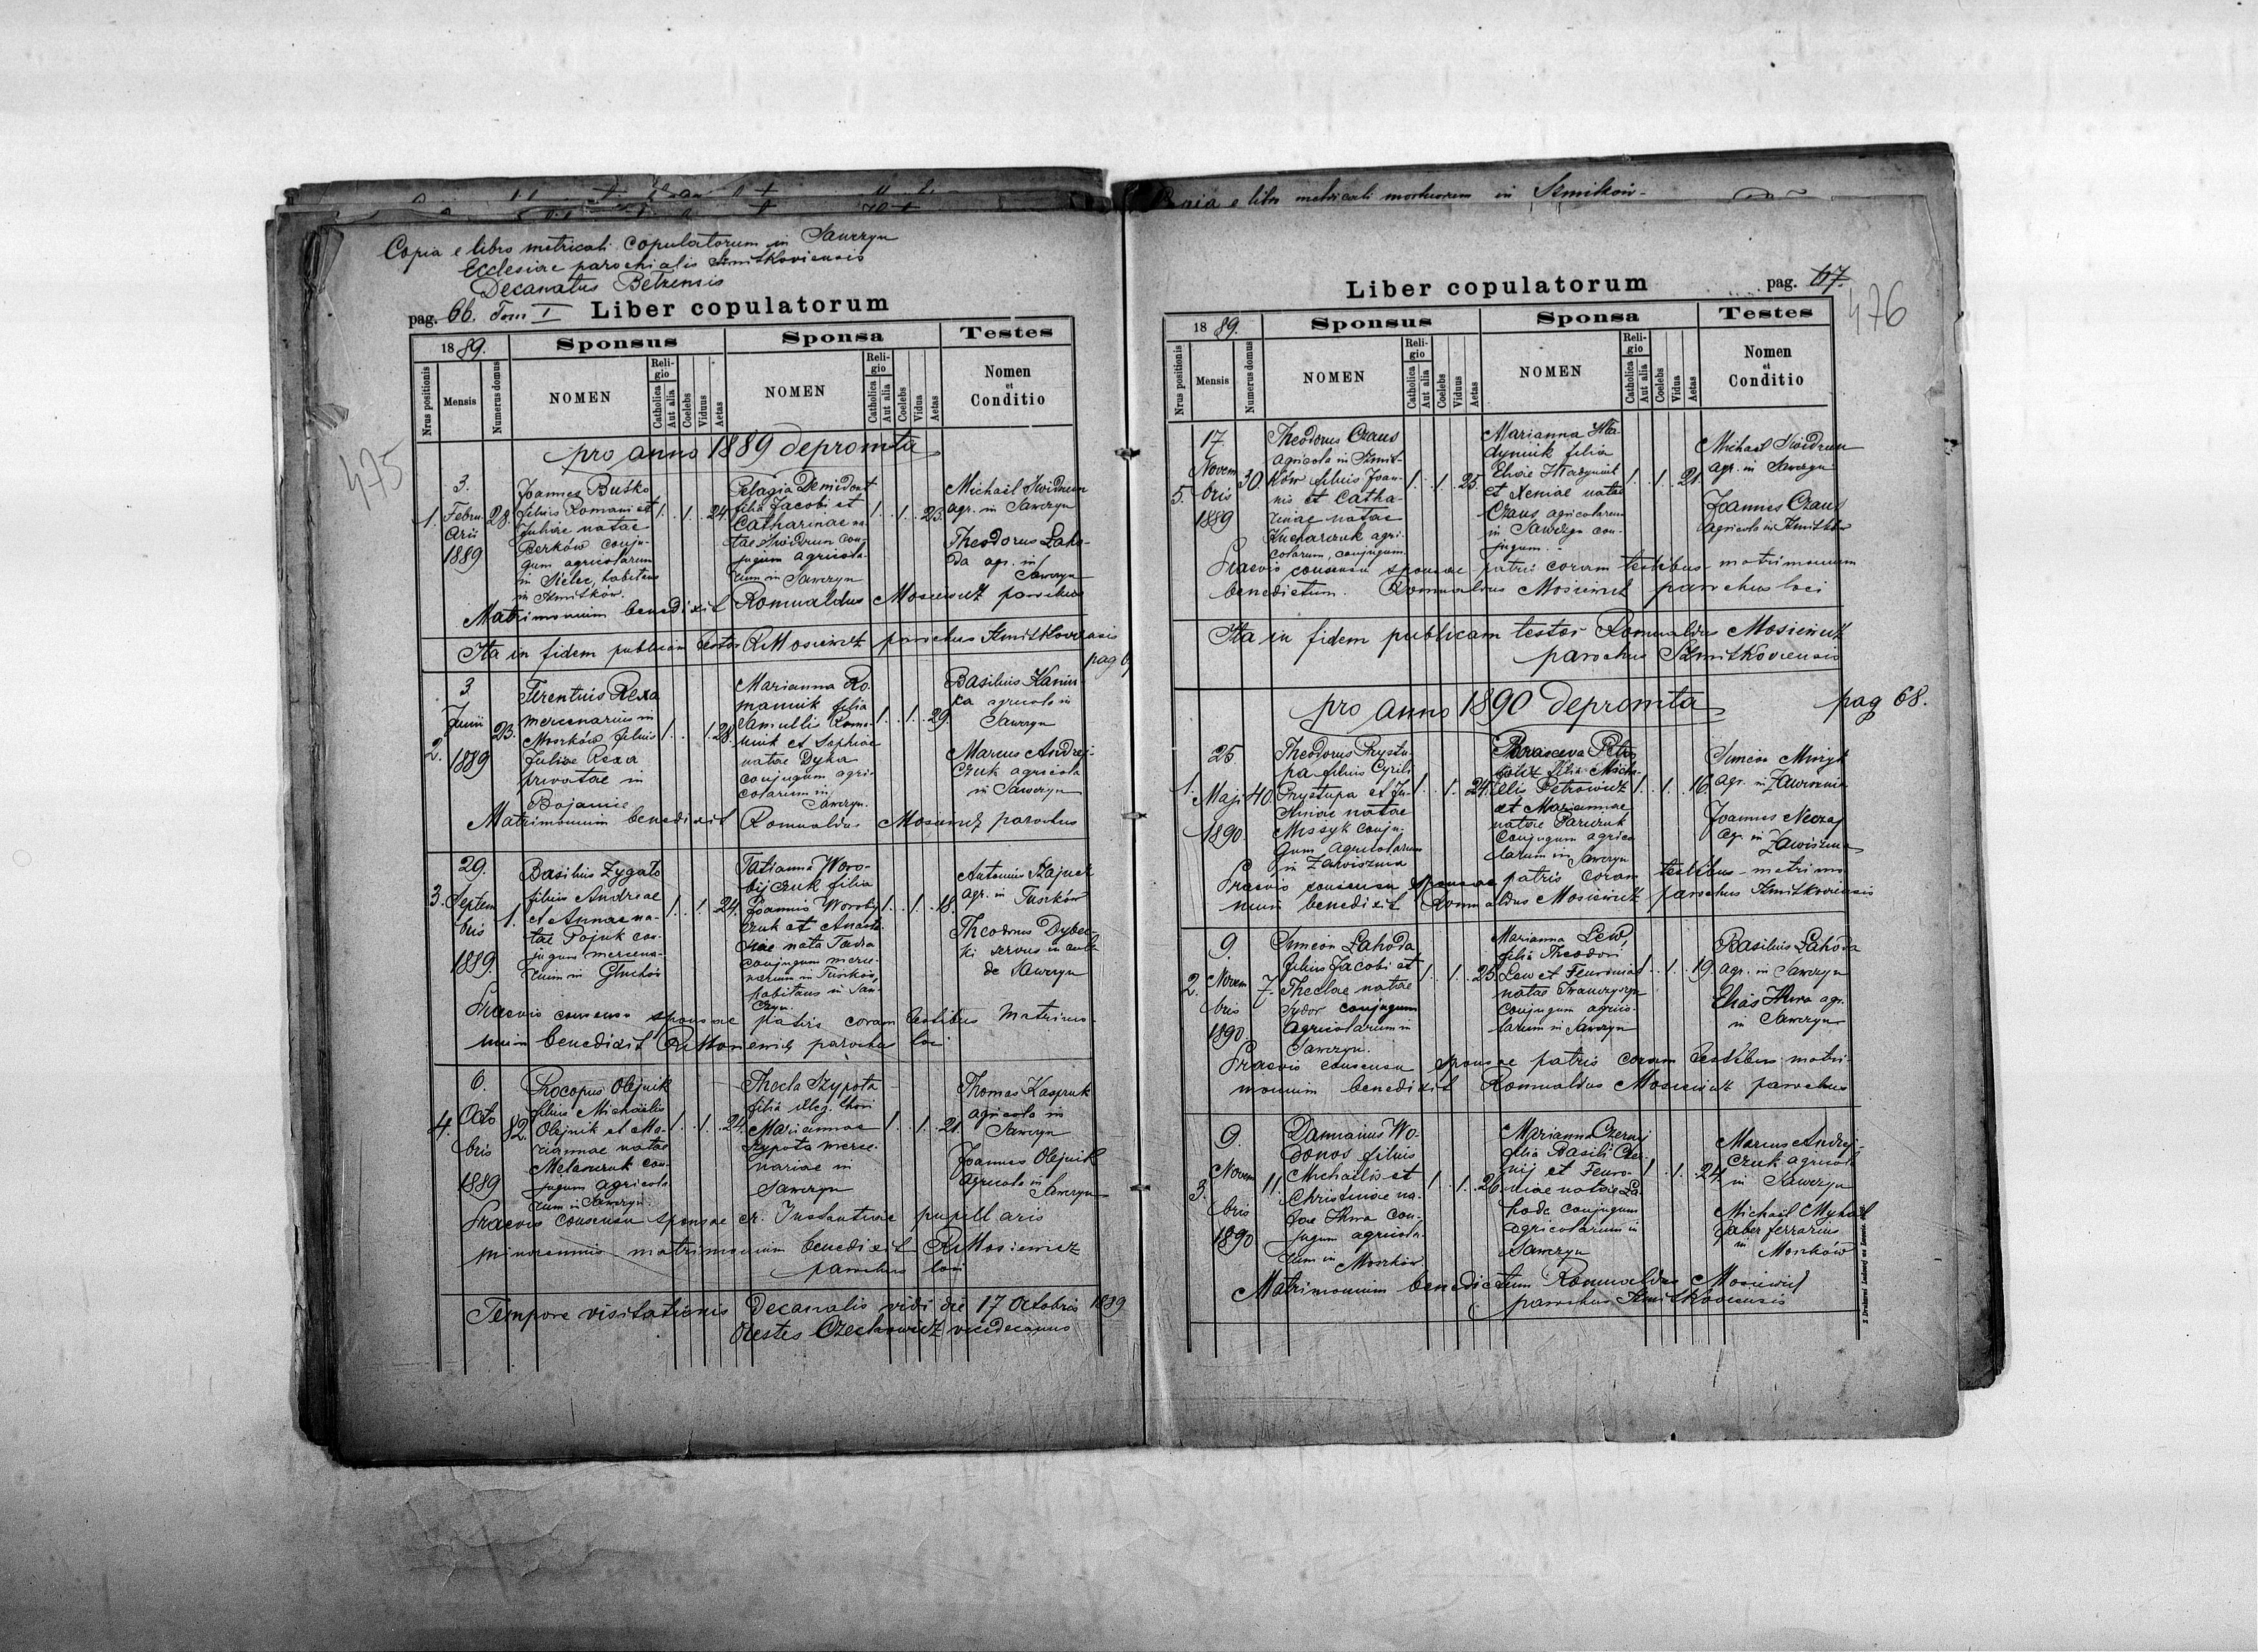 Copia e libro metricali copulatorum in Sawczyn
Ecclesiae parochialis Szmitkoviensis
Decanatus Betzensis
pag. 66. Tom I Liber copulatorum
475
1889.
Sponsus
Sponsa
Testes
Nrus positionis
Mensis
Numerus domus
NOMEN
Religio
Catholica
Aut alia
Coelebs
Viduus
Aetas
NOMEN
Religio
Catholica
Aut alia
Coelebs
Vidua
Aetas
Nomen
et
Conditio
pro anno 1889 depromta
1.
3.
Februarii
1889
28.
Joannes Buśko
filius Romani et
Juliae natae
Berków conju-
gum agricolarum
in Sielec, habitans
in Szmitków.
1. . 1. . 24.
Pelagia Demidont
filia Jacobi et
Catharinae na-
tae Swidrun con-
jugum agricola-
rum in Sawczyn
1. . 1. . 23.
Michael Swidrun
agr. in Sawczyn
Theodorus Laho-
da agr. in
Sawczyn
Matrimonium benedixit Romualdus Mosiewicz parochus
Ita in fidem publicam testor RMosiewicz parochus Szmitkoviensis
2.
3
Junii
1889
23.
Terentius Rexa
mercenarius in
Moszków filius
Juliae Rexa
privatae in
Bojanice
1. . . 1. 28.
Marianna Ro-
maniuk filia
Samuelis Roma-
niuk et Sophiae
natae Dyka
conjugum agri-
colarum in
Sawczyn.
1. . 1. . 29.
Basilius Kanin-
ka agricola in
Sawczyn
Marcus Andrej-
czuk agricola
in Sawczyn
Matrimonium benedixit Romualdus Mosiewicz parochus
3.
29.
Septem
bris
1889.
1.
Basilius Zygało
filius Andreae
et Annae na-
tae Pojuk con-
jugum mercena-
rium in Głuchów
1. . 1. 24.
Tatianna Woro-
bijczuk filia
Joannis Worobij-
czuk et Anasta-
siae nata
conjugum merce-
narium in Tuszków
habitans in Saw-
czyn.
1. . 1. . 18.
Antonius Szajuck
agr. in Tuszków
Theodorus Dybec-
ki servus in aula
de Sawczyn
Praevio consensu sponsae patris coram testibus matrimo-
nium benedixit RMosiewicz parochus loci
4.
6.
Octo
bris
1889
82.
Procopius Olejnik
filius Michaelis
Olejnik et Ma-
riannae natae
Melanczuk con-
jugum agricola-
rum in Sawczyn.
1. . 1. . 24.
Thecla Szypota
filia illeg. thori
Mariannae
Szypota merce-
nariae in
Sawczyn
1. . 1. . 21.
Thomas Kaspruk
agricola in
Sawczyn
Joannes Olejnik
agricola in
Sawczyn
Praevio consensu sponsae cr. Instantiae pupillaris
minorennis matrimonium benedixit RMosiewicz
parochus loci
Tempore visitationis Decanalis vidi die 17 Octobris 1889
Orestes Czechowicz vicedecanus
Copia e libro metricali mortuorum in Szmitków
Liber copulatorum
pag. 67.
476
1889.
Sponsus
Sponsa
Testes
Nrus positionis
Mensis
Numerus domus
NOMEN
Religio
Catholica
Aut alia
Coelebs
Viduus
Aetas
NOMEN
Religio
Catholica
Aut alia
Coelebs
Vidua
Aetas
Nomen
et
Conditio
5.
17.
Novem
bris
1889
30.
Theodorus Czaus
agricola in Szmit-
ków filius Joan-
nis et Catha-
rinae natae
Kucharczuk agri-
colarum, conjugum.
1. . 1. . 25.
Marianna Hła-
dyniuk filia
Eliae Hładyniuk
et Xeniae natae
Czaus agricolarum
in Sawczyn con-
jugum.
1. . 1. . 21.
Michael Swidrun
agr. in Sawczyn
Joannes Czaus
agricola in Szmitków
Praevio consensu sponsae patris coram testibus matrimonium
benedictum. Romualdus Mosiewicz parochus loci
Ita in fidem publicam testor Romualdus Mosiewicz
parochus Szmitkoviensis
pro anno 1890 depromta
pag 68.
1.
25.
Maji
1890
40.
Theodorus Prystu-
pa filius Cyrili
Prystupa et Ju-
stinae natae
Missyk conju-
gum agricolarum
in Zawisznia
1. . 1. . 24.
Parasceva Petro-
wicz filia Micha-
elis Petrowicz
et Mariannae
natae Parczuk
conjugum agrico-
larum in Sawczyn
1. . 1. . 16.
Simeon
agr. in Zawisznia
Joannes Neczaj
agr. in Zawisznia
Praevio consensu sponsae patris coram testibus matrimo-
nium benedixit Romualdus Mosiewicz parochus Szmitkoviensis
2.
9.
Novem
bris
1890
7.
Simeon Lahoda
filius Jacobi et
Theclae natae
Sydor conjugum
agricolarum in
Sawczyn.
1. . 1. . 25.
Marianna Lew,
filia Theodori
Lew et Feuroniae
natae Iwanczyszyn
conjugum agrico-
larum in Sawczyn
1. . 1. . 19.
Basilius Lahoda
agr. in Sawczyn
Elias Hłwa agr.
in Sawczyn
Praevio consensu sponsae patris coram testibus matri-
monium benedixit Romualdus Mosiewicz parochus
3.
9.
Novem
bris
1890
11.
Damianus Wo-
donos filius
Michaelis et
Christinae na-
tae Hłwa con-
jugum agricola-
rum in Moszków
1. . 1. . 26.
Marianna Czernij
filia Basili Czer-
nij et Feuro-
niae natae La-
hoda conjugum
agricolarum in
Sawczyn
1. . 1. . 24.
Marcus Andrej-
czuk agricola
in Sawczyn
Michael Myhal
faber ferrarius
in
Moszków
Matrimonium benedictum Romualdus Mosiewicz
parochus Szmitkoviensis